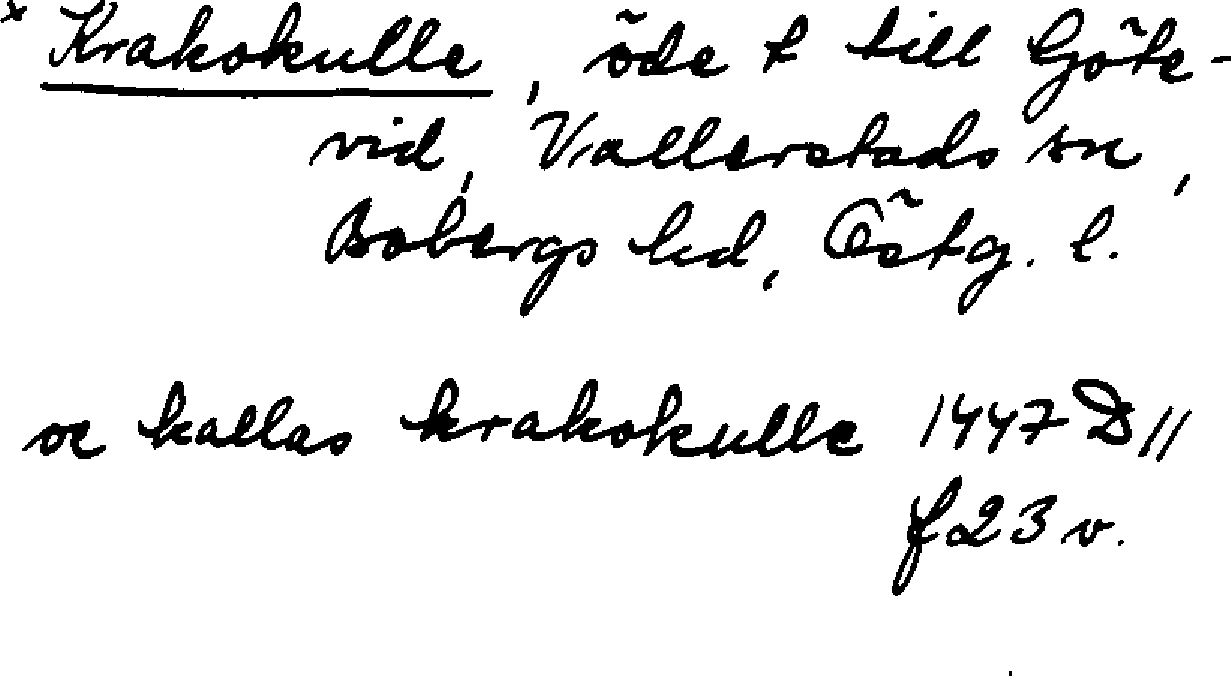 x Krakokulle, öde t till Göte-
vid, Vallerstads sn,
Bobergs hd, Östg. l.
oc kallas krakokulle 1447 D 11
f 23 v.